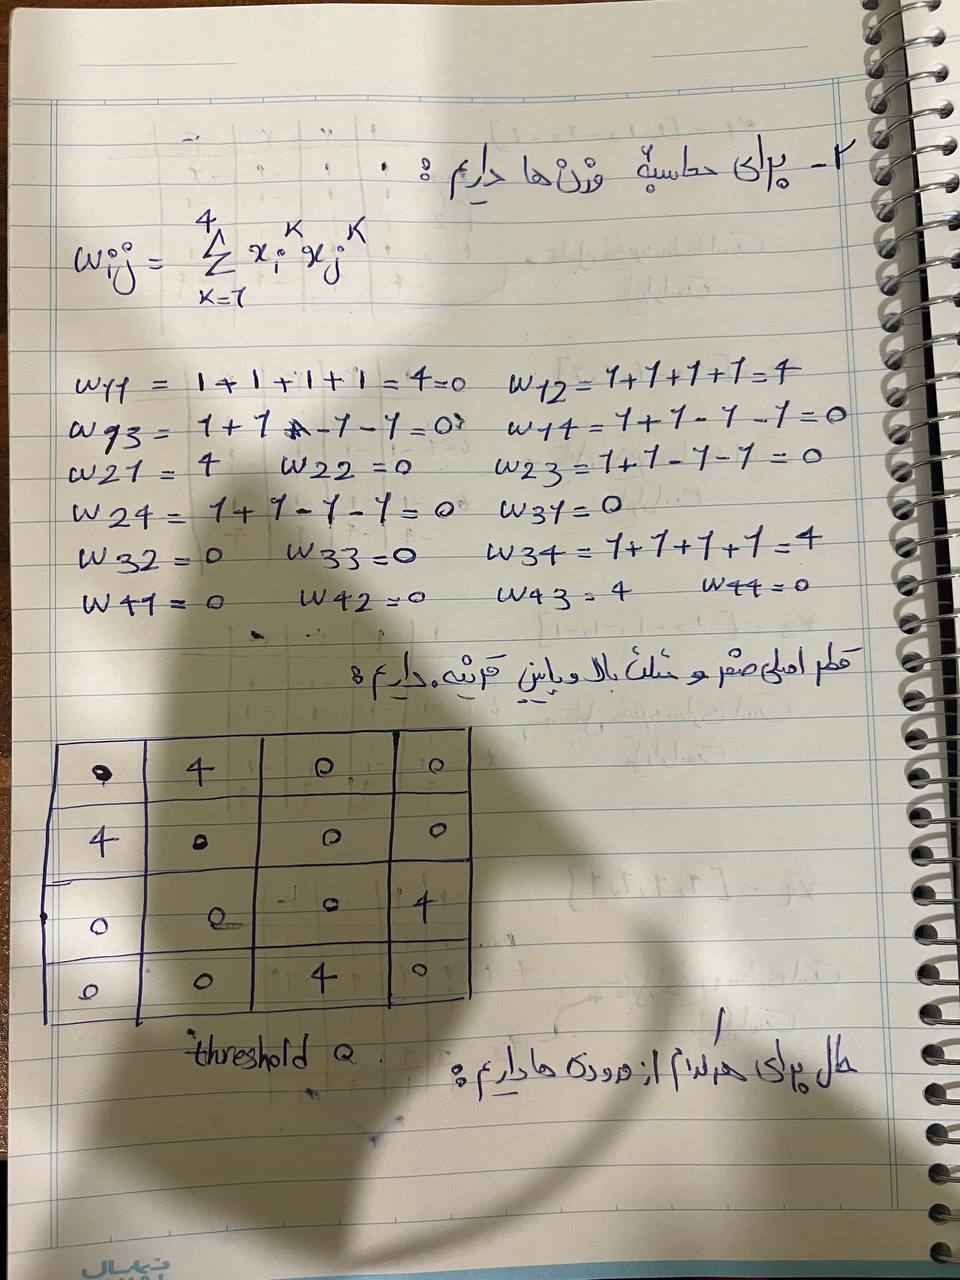 ۲- برای محاسبهٔ وزن ها داریم :
wij = 4 Σ K=1 xi^K xj^K
w11 = 1 + 1 + 1 + 1 = 4 = 0 w12 = 1 + 1 + 1 + 1 = 4
w13 = 1 + 1 - 1 - 1 = 0 w14 = 1 + 1 - 1 - 1 = 0
w21 = 4 w22 = 0 w23 = 1 + 1 - 1 - 1 = 0
w24 = 1 + 1 - 1 - 1 = 0 w31 = 0
w32 = 0 w33 = 0 w34 = 1 + 1 + 1 + 1 = 4
w41 = 0 w42 = 0 w43 = 4 w44 = 0
قطر اصلی صفر و مثلث بالا و پایین قرینه. داریم :
0 4 0 0
4 0 0 0
0 0 0 4
0 0 4 0
threshold 0
حال برای هرکدام از ورودی ها داریم :